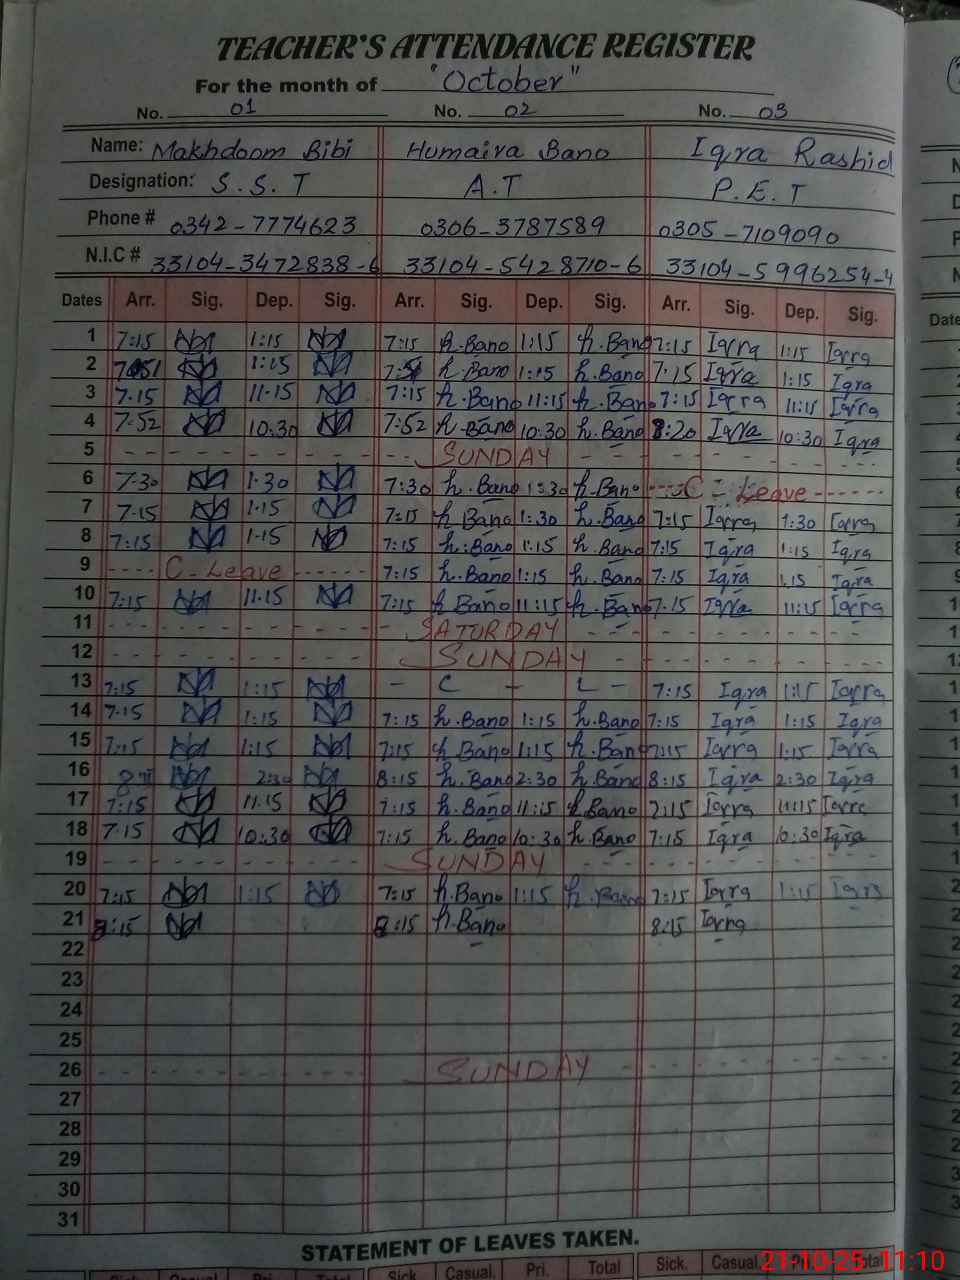 TEACHER'S ATTENDANCE REGISTER
For the month of "October"
No. 01 No. 02 No. 03
Name: Makhdoom Bibi Humaira Bano Iqra Rashid
Designation: S.S.T A.T P.E.T
Phone # 0342-7774623 0306-3787589 0305-7109090
N.I.C # 33104-3472838-6 33104-5428710-6 33104-5996254-4
Dates Arr. Sig. Dep. Sig. Arr. Sig. Dep. Sig. Arr. Sig. Dep. Sig.
1 7:15 1:15 7:15 h.Bano 1:15 h.Bano 7:15 Iqra 1:15 Iqra
2 1:15 h.Bano 1:15 h.Bano 7:15 Iqra 1:15 Iqra
3 7.15 11.15 7:15 h.Bano 11:15 h.Bano 7:15 Iqra 11:15 Iqra
4 7:52 10:30 7:52 h.Bano 10:30 h.Bano 8:20 Iqra 10:30 Iqra
5 SUNDAY
6 7-30 1.30 7:30 h.Bano 1:30 h.Bano C-Leave
7 7-15 1.15 7:15 h.Bano 1:30 h.Bano 7:15 Iqra 1:30 Iqra
8 7:15 1.15 7:15 h.Bano 1:15 h.Bano 7:15 Iqra 1:15 Iqra
9 C-Leave 7:15 h.Bano 1:15 h.Bano 7:15 Iqra 1:15 Iqra
10 7:15 11.15 7:15 h.Bano 11:15 h.Bano 7.15 Iqra 11:15 Iqra
11 SATURDAY
12 SUNDAY
13 7:15 1:15 - C - L - 7:15 Iqra 1:15 Iqra
14 7.15 1:15 7:15 h.Bano 1:15 h.Bano 7:15 Iqra 1:15 Iqra
15 7:15 1:15 7:15 h.Bano 1:15 h.Bano 7:15 Iqra 1:15 Iqra
16 2:30 8:15 h.Bano 2:30 h.Bano 8:15 Iqra 2:30 Iqra
17 7:15 11.15 7:15 h.Bano 11:15 h.Bano 7:15 Iqra 11:15 Iqra
18 7.15 10:30 7:15 h.Bano 10:30 h.Bano 7:15 Iqra 10:30 Iqra
19 SUNDAY
20 7:15 1:15 7:15 h.Bano 1:15 h.Bano 7:15 Iqra 1:15 Iqra
21 8:15 8:15 h.Bano 8:15 Iqra
22
23
24
25
26 SUNDAY
27
28
29
30
31
STATEMENT OF LEAVES TAKEN.
Sick. Casual. Pri. Total Sick. Casual. Pri. Total Sick. Casual. Pri. Total
21-10-25 11:10